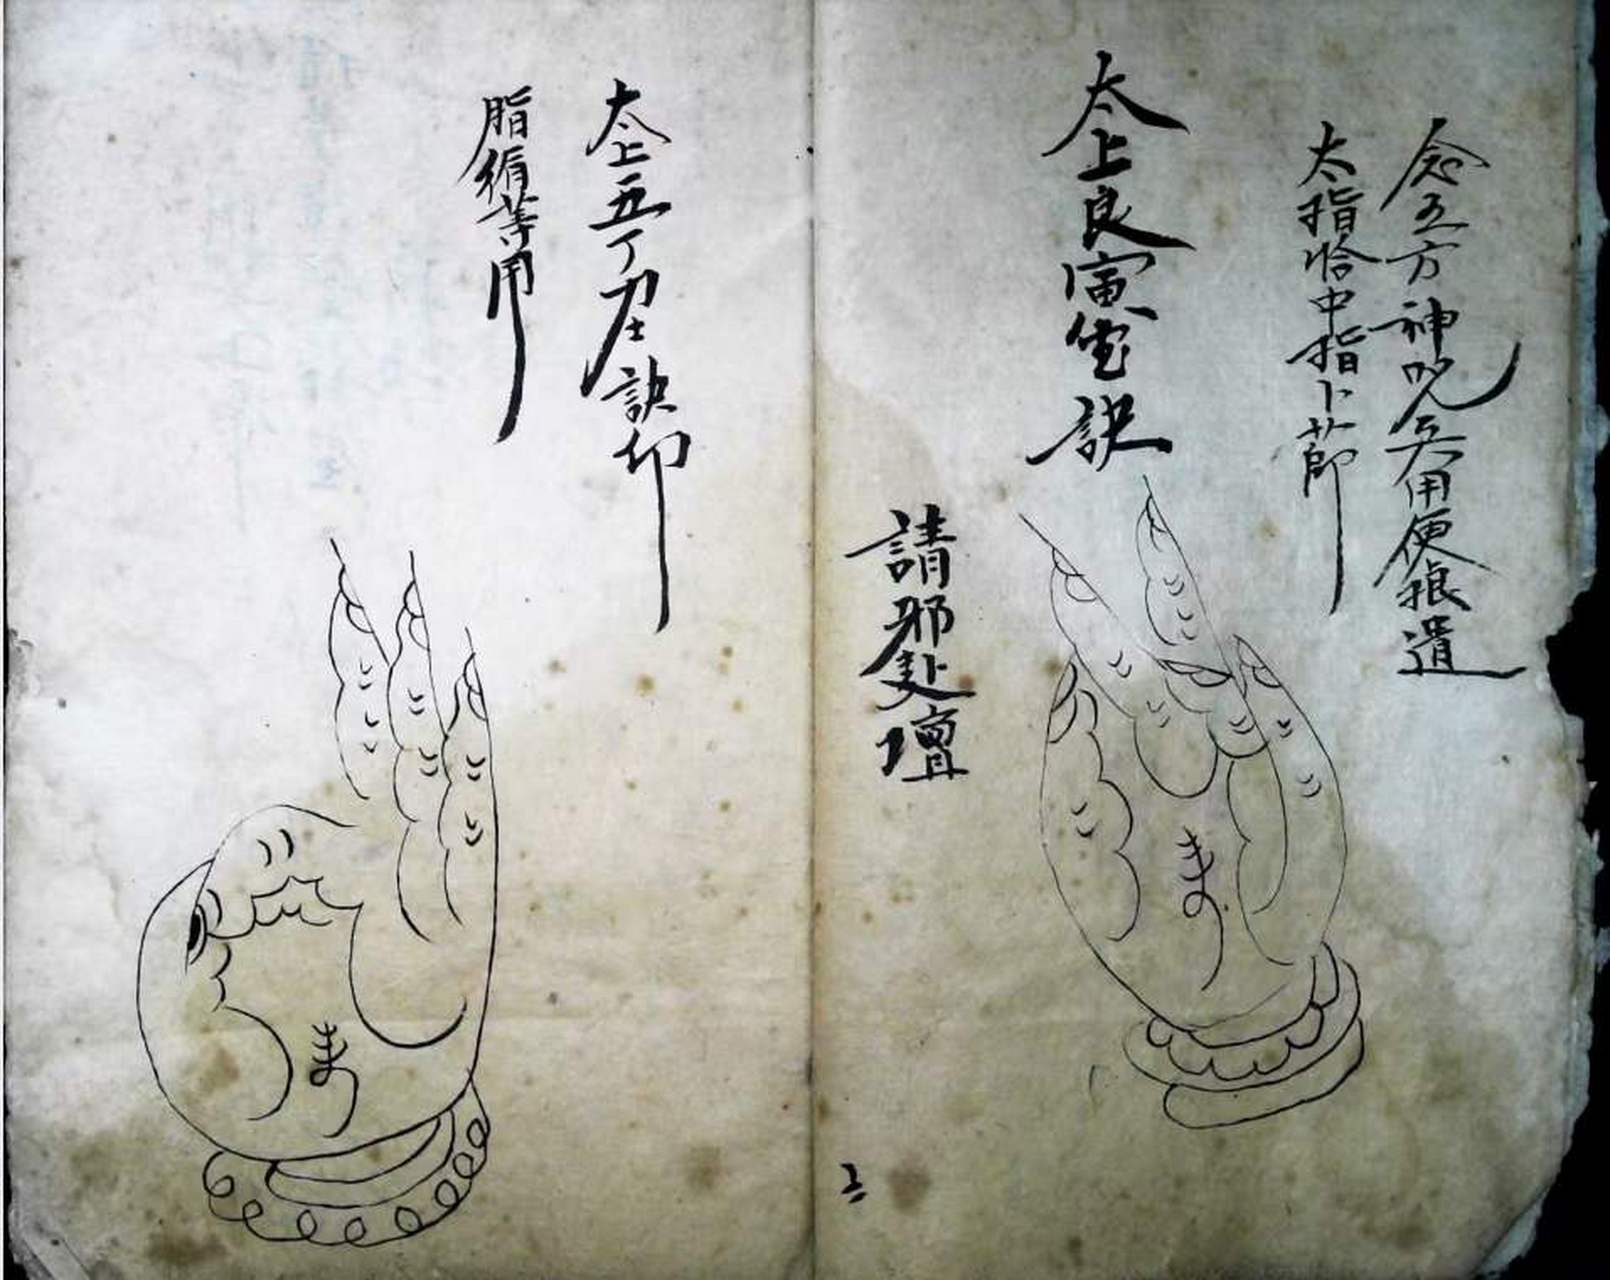 念五方神咒 兵用便狼遣
太指恰中指卜节
太上良寅宫訣
請邪赴壇
太上五丁力士訣印
脂循等用